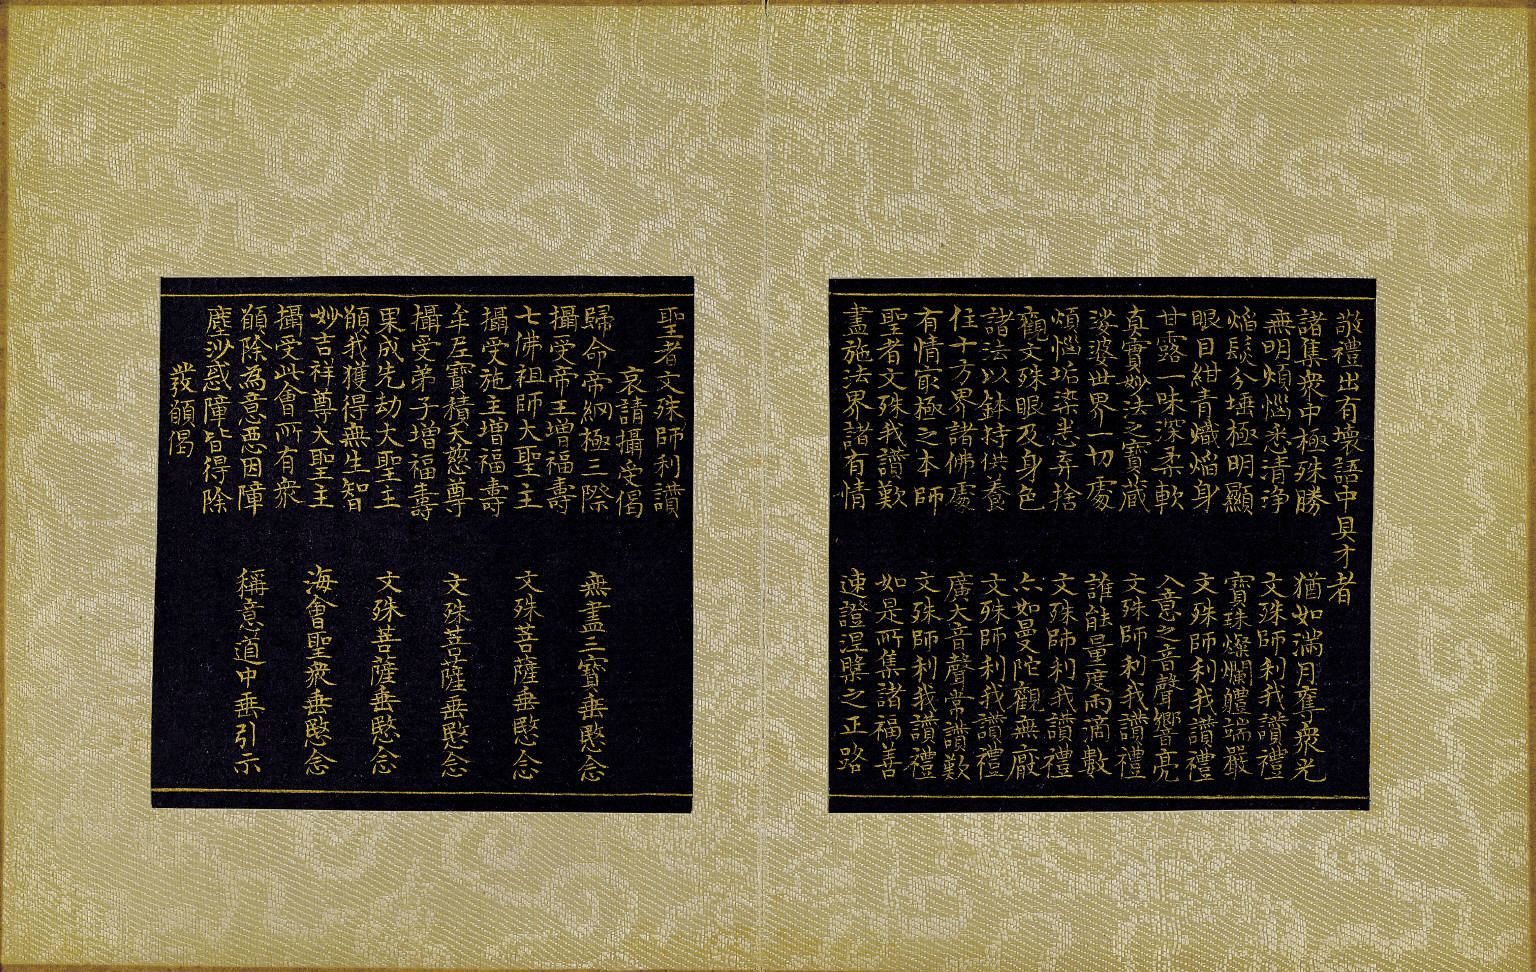 敬禮出有壞語中具才者
諸集衆中極殊勝　猶如滿月奪衆光
無明煩惱悉清淨　文殊師利我讚禮
焰鬘分埵極明顯　寶珠燦爛軆端嚴
眼目紺青熾焰身　文殊師利我讚禮
甘露一味深柔軟　入意之音聲響亮
真實妙法之寶藏　文殊師利我讚禮
娑婆世界一切處　誰能量度雨滴數
煩惱垢染悉弃捨　文殊師利我讚禮
觀文殊眼及身色　亦如曼陀觀無厭
諸法以鉢持供養　文殊師利我讚禮
住十方界諸佛處　廣大音聲常讚歎
有情㝡極之本師　文殊師利我讚禮
聖者文殊我讚歎　如是所集諸福善
盡施法界諸有情　速證涅槃之正路
聖者文殊師利讚
哀請攝受偈
歸命帝網極三際　無盡三寶垂愍念
攝受帝王增福壽
七佛祖師大聖主　文殊菩薩垂愍念
攝受施主增福壽
牟尼寶積大慈尊　文殊菩薩垂愍念
攝受弟子增福壽
果成先劫大聖主　文殊菩薩垂愍念
願我獲得無生智
妙吉祥尊大聖主　海會聖衆垂愍念
攝受此會所有衆
願除為意惡因障　稱意道中垂引示
塵沙惑障皆得除
發願偈